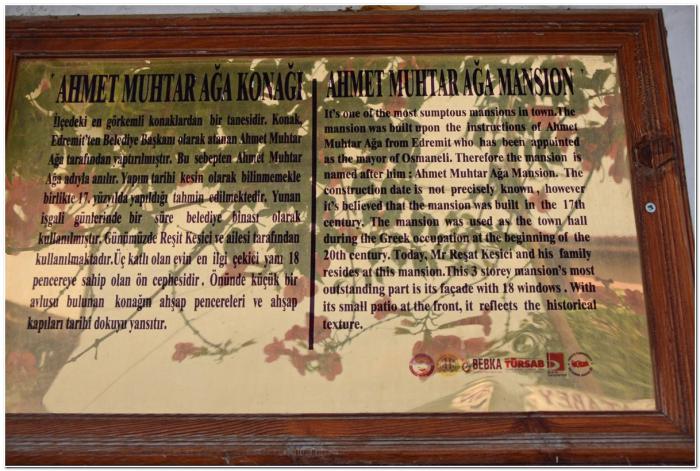 'AHMET MUHTAR AĞA KONAĞI
İlçedeki en görkemli konaklardan bir tanesidir. Konak,
Edremit'ten Belediye Başkanı olarak atanan Ahmet Muhtar
Ağa tarafından yaptırılmıştır. Bu sebepten Ahmet Muhtar
Ağa adıyla anılır. Yapım tarihi kesin olarak bilinmemekle
birlikte 17. yüzyılda yapıldığı tahmin edilmektedir. Yunan
işgali günlerinde bir süre belediye binası olarak
kullanılmıştır. Günümüzde Reşit Kesici ve ailesi tarafından
kullanılmaktadır.Üç katlı olan evin en ilgi çekici yanı 18
pencereye sahip olan ön cephesidir. Önünde küçük bir
avlusu bulunan konağın ahşap pencereleri ve ahşap
kapıları tarihi dokuyu yansıtır.
AHMET MUHTAR AĞA MANSION '
It's one of the most sumptous mansions in town.The
mansion was built upon the instructions of Ahmet
Muhtar Ağa from Edremit who has been appointed
as the mayor of Osmaneli. Therefore the mansion is
named after him : Ahmet Muhtar Ağa Mansion. The
construction date is not precisely known , however
it's believed that the mansion was built in the 17th
century. The mansion was used as the town hall
during the Greek occupation at the beginning of the
20th century. Today, Mr Reşat Kesici and his family
resides at this mansion.This 3 storey mansion's most
outstanding part is its façade with 18 windows . With
its small patio at the front, it reflects the historical
texture.
BEBKA TÜRSAB